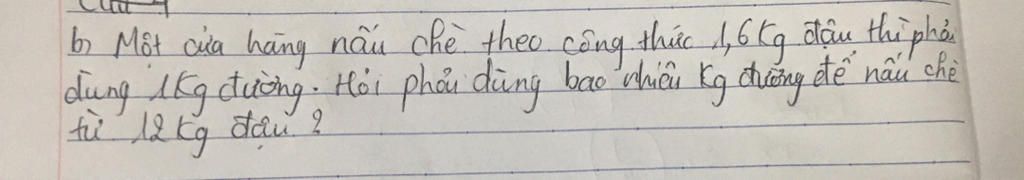 b) Một cửa hàng nấu chè theo công thức 1,6 Kg đậu thì phải
dùng 1Kg đường. Hỏi phải dùng bao nhiêu Kg đường để nấu chè
từ 12 Kg đậu ?